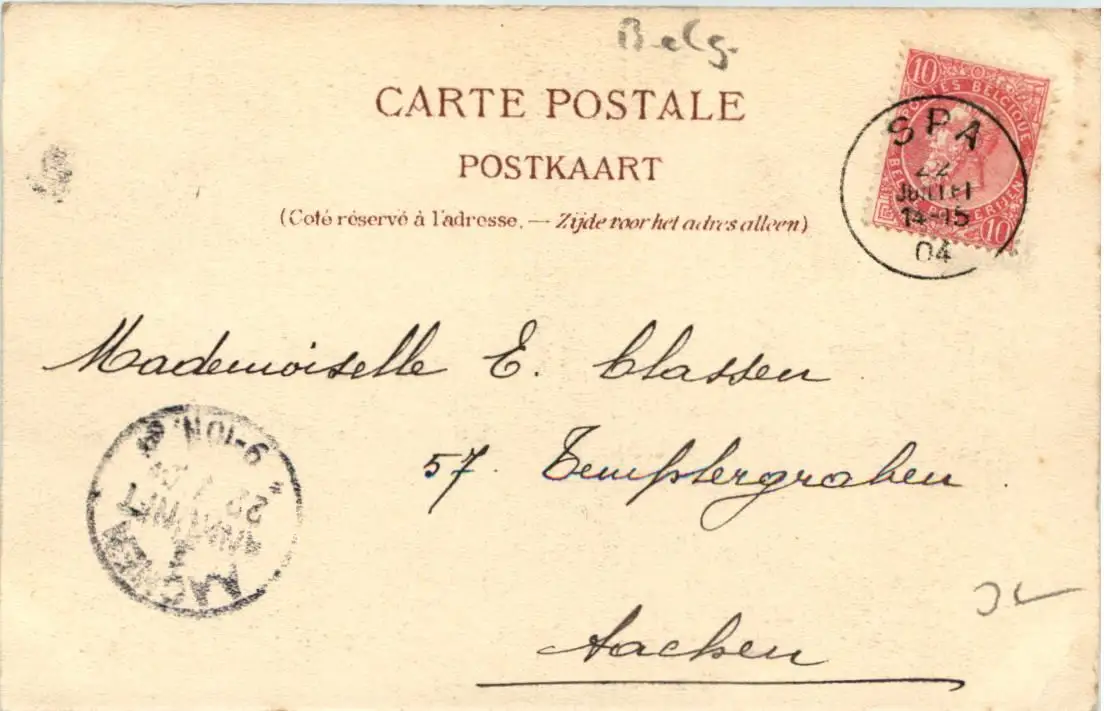 Belg.
CARTE POSTALE
POSTKAART
(Coté réservé à l'adresse. — Zijde voor het adres alleen)
10
POSTES BELGIQUE
BELGIE POSTERIJEN
10
SPA
22
JUILLET
14-15
04
Mademoiselle E. Classen
57. Templergraben
Aachen
AACHEN
1
ANKUNFT
22 7 04
9-10 N.